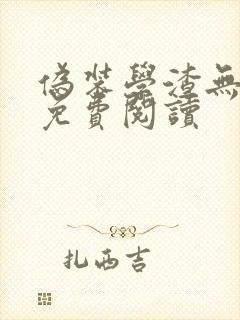 偽裝學渣無
免費閱讀
扎西吉